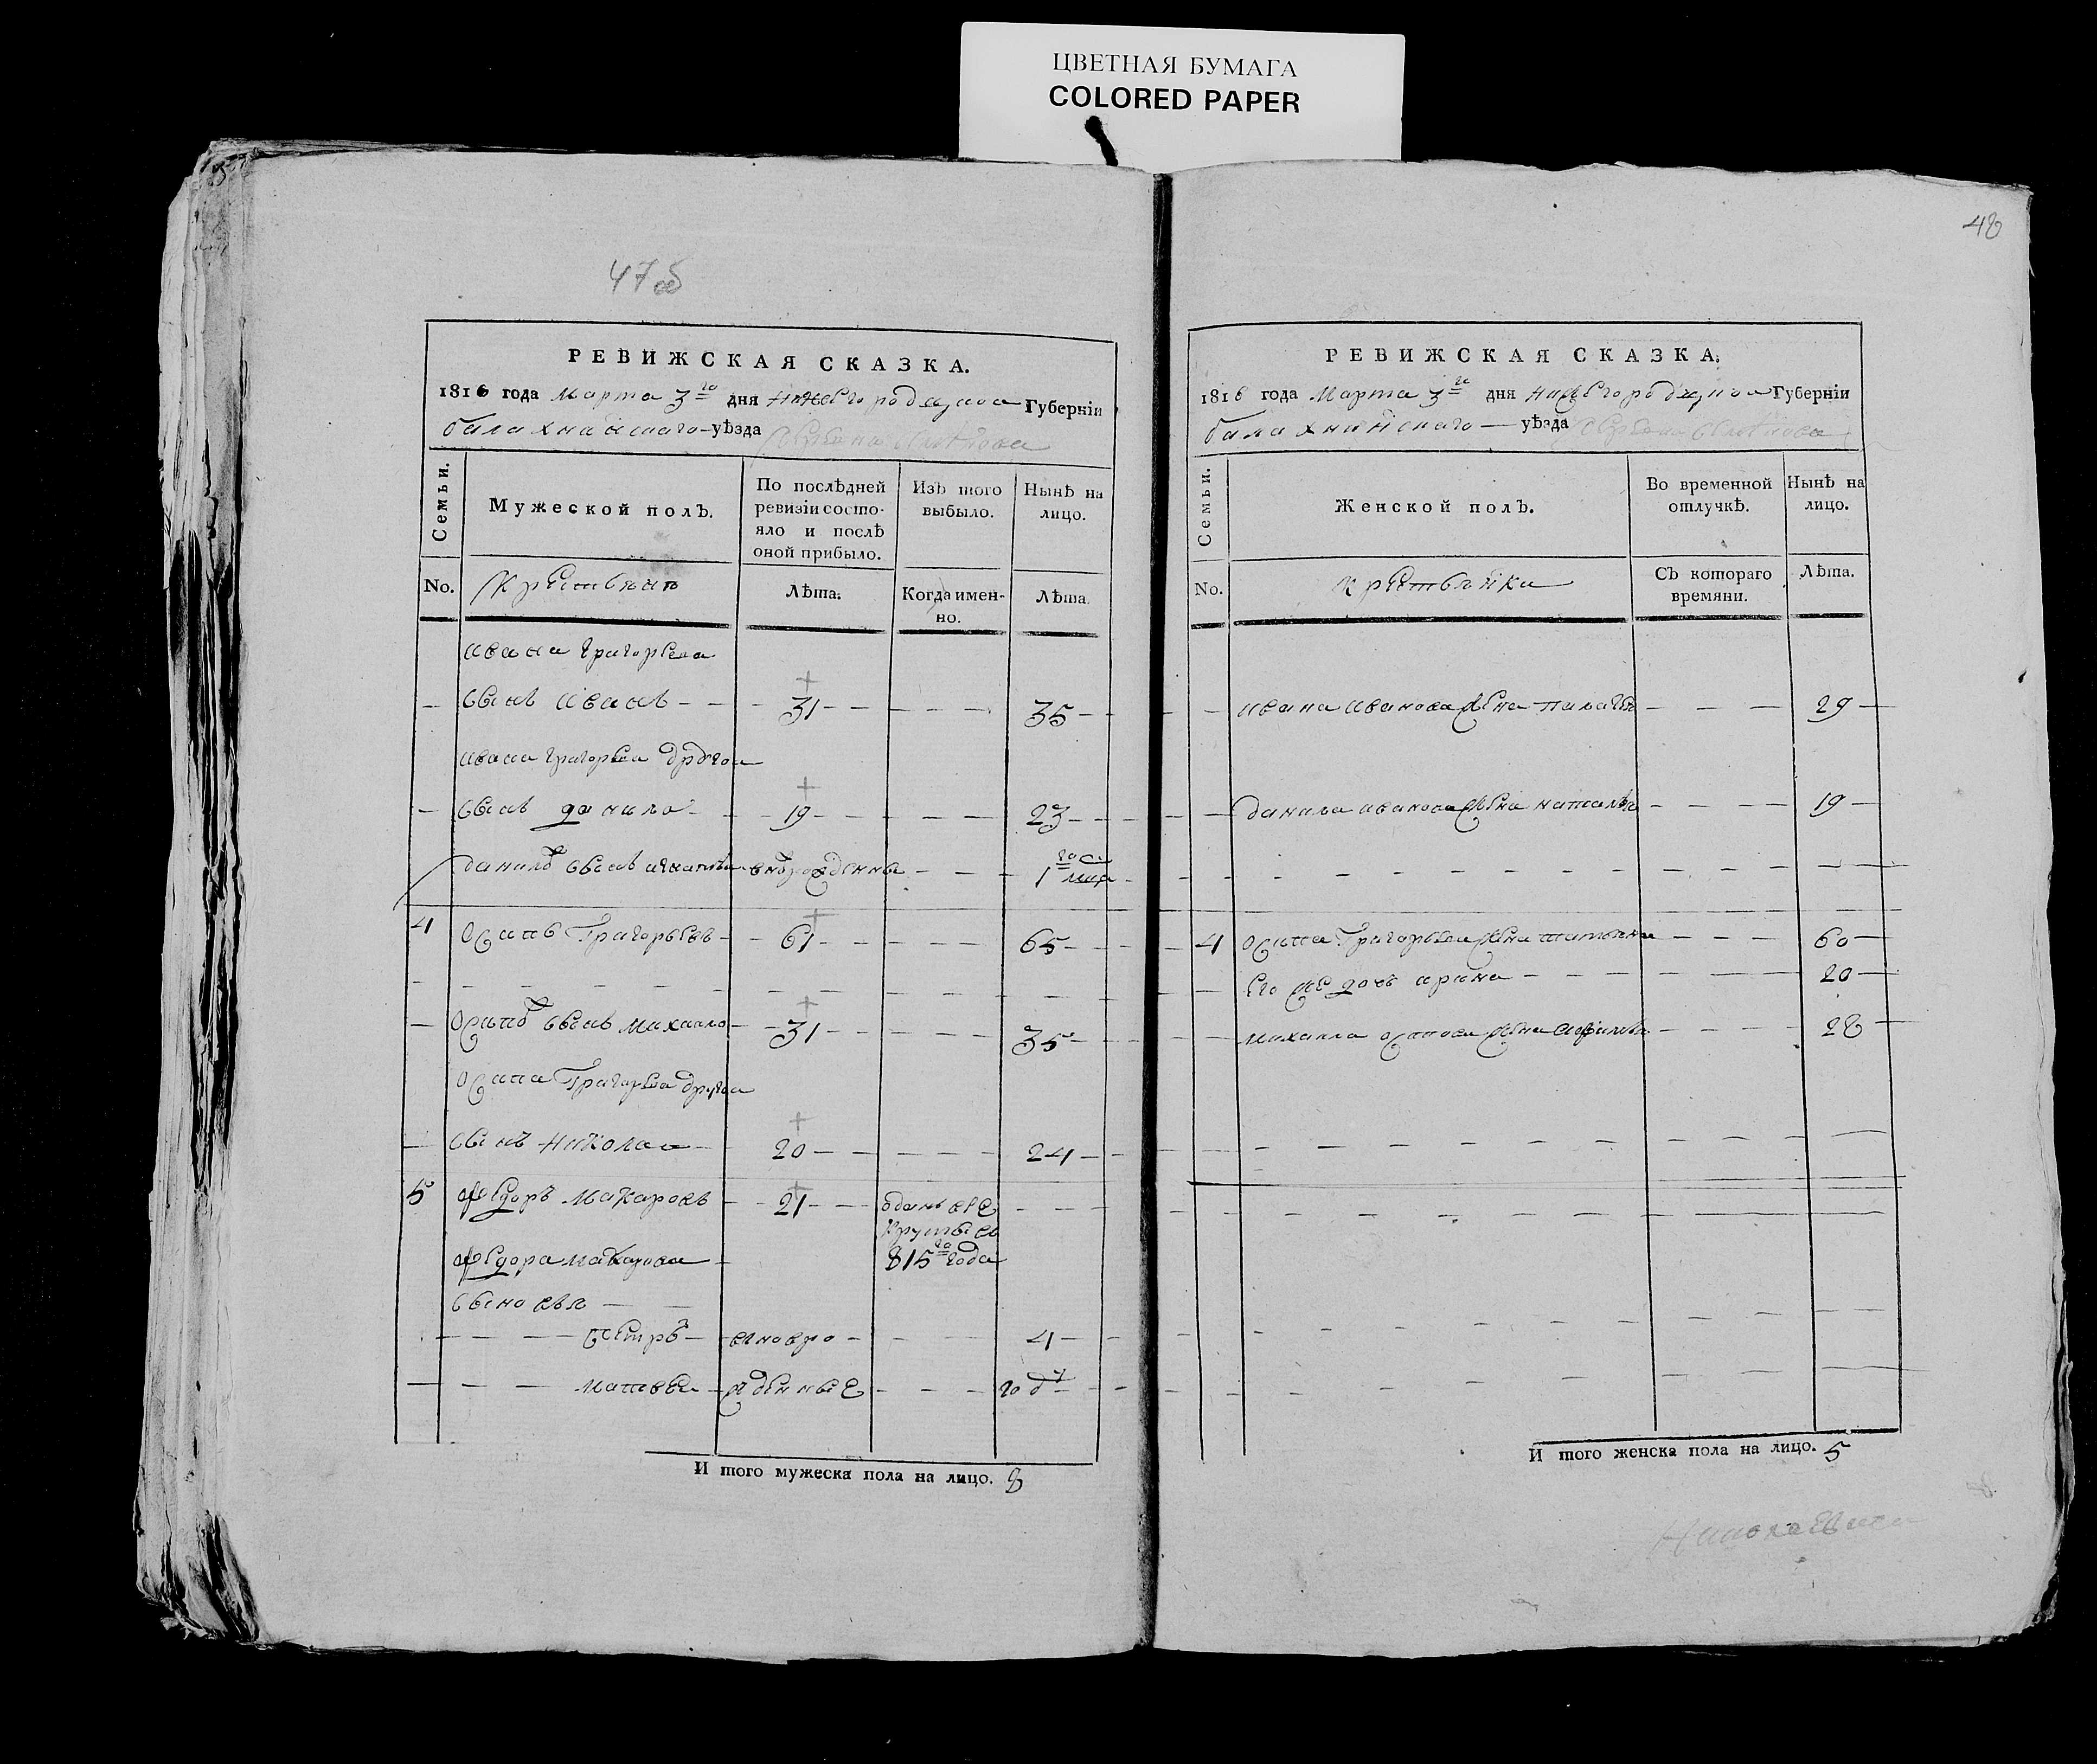 ЦВЕТНАЯ БУМАГА
COLORED PAPER
47об
РЕВИЖСКАЯ СКАЗКА.
1816 года Марта 3го дня Нижегородской Губерніи
балахнинскаго уѣзда
Семьи.
Мужеской полъ.
По послѣдней ревизіи состояло и послѣ оной прибыло.
Изъ того выбыло.
Нынѣ на лицо.
No.
Крестьянъ
Лѣта.
Когда именно.
Лѣта.
ивана григорьева
— сынъ иванъ — 31 — 35
ивана григорьева другои
— сынъ данило — 19 — 23
данилы сынъ игнатеи вновърожденны — 1го мца
4 Осипъ Григорьевъ — 61 — 65
— Осипа сынъ михаило — 31 — 35
Осипа Григорьева другои
— сынъ николаи — 20 — 24
5 федоръ макаровъ — 21 — отданъ въ
рекруты въ
815го года
федора макарова
сыновья
— петръ — вновро — 4
— матвеи — жденные — годъ
И того мужеска пола на лицо. 8
48
РЕВИЖСКАЯ СКАЗКА.
1816 года Марта 3го дня нижегородской Губерніи
балахнинскаго — уѣзда
Семьи.
Женской полъ.
Во временной отлучкѣ.
Нынѣ на лицо.
No.
крестьянка
Съ котораго времяни.
Лѣта.
— ивана иванова жена палагея — 29
— данила иванова жена наталья — 19
4 осипа Григорьева жена татьяна — 60
— его же дочь арина — 20
— михаила осипова жена — 28
И того женска пола на лицо. 5